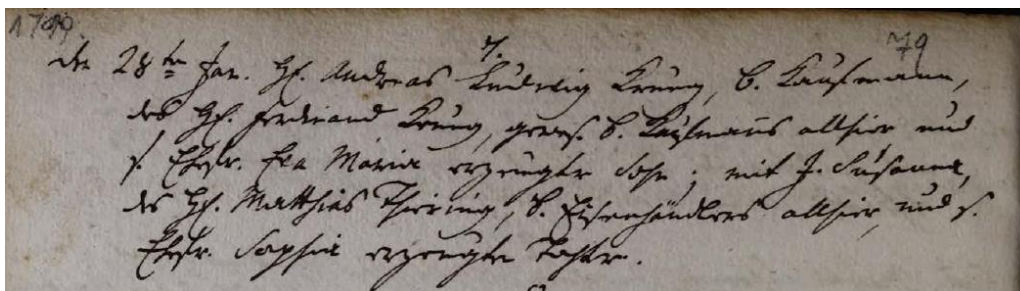 1799. 79
7.
den 28ten Jan. H. Andreas Ludwig Krung, b. Kaufmann,
des H. Ferdinand Krung, gewes. b. Kaufmans allhier und
s. Ehefr. Eva Maria erzeugter Sohn; mit J. Susanna,
des H. Matthias Thiering, b. Eisenhändlers allhier, und s.
Ehefr. Sophia erzeugten Tochter.